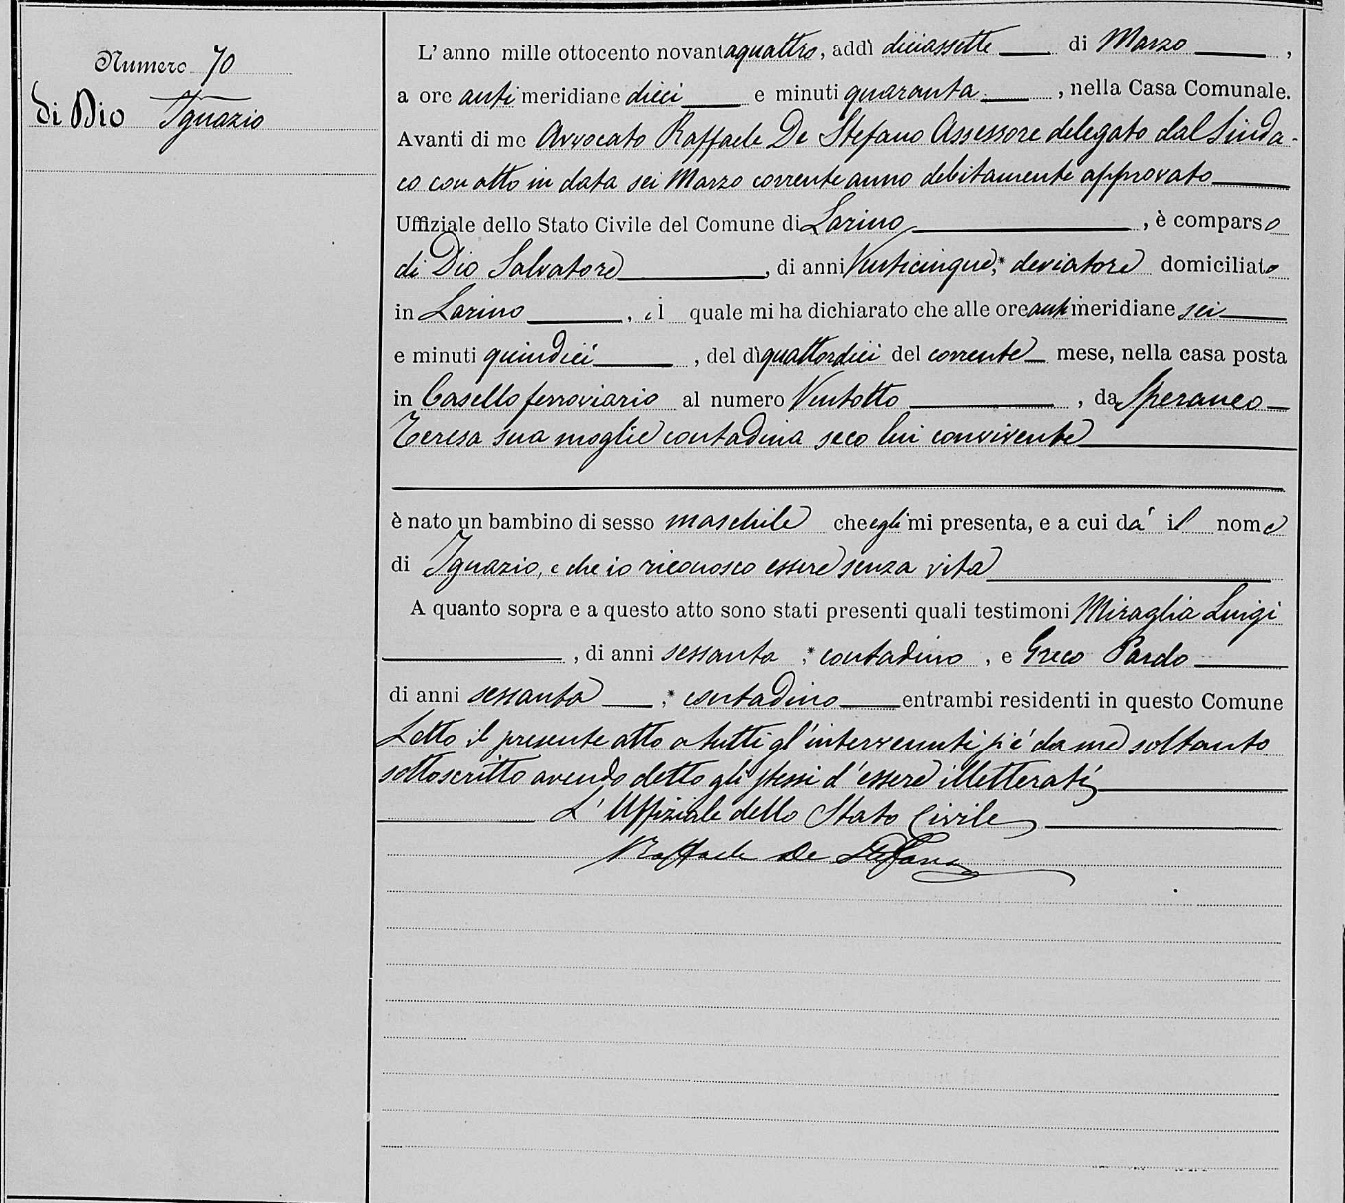 Numero 70
di Dio Ignazio
L'anno mille ottocento novantaquattro, addì diciassette di Marzo,
a ore antimeridiane dieci e minuti quaranta, nella Casa Comunale.
Avanti di me Avvocato Raffaele De Stefano Assessore delegato dal Sinda-
co con atto in data sei Marzo corrente anno debitamente approvato
Uffiziale dello Stato Civile del Comune di Larino, è comparso
di Dio Salvatore, di anni Venticinque,* deviatore domiciliato
in Larino, il quale mi ha dichiarato che alle ore antimeridiane sei
e minuti quindici, del dì quattordici del corrente mese, nella casa posta
in Casello ferroviario al numero Ventotto, da Speranco
Teresa sua moglie contadina seco lui convivente
è nato un bambino di sesso maschile che egli mi presenta, e a cui dà il nome
di Ignazio, e che io riconosco essere senza vita
A quanto sopra e a questo atto sono stati presenti quali testimoni Miraglia Luigi
, di anni sessanta,* contadino, e Greco Pardo
di anni sessanta,* contadino entrambi residenti in questo Comune
Letto il presente atto a tutti gl'intervenuti si è da me soltanto
sottoscritto avendo detto gli stessi d'essere illetterati
L'Uffiziale dello Stato Civile
Raffaele De Stefano